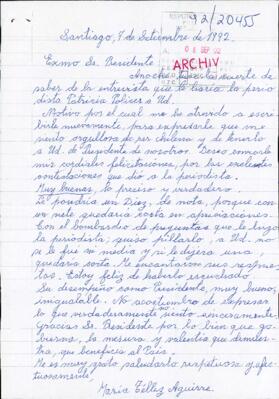 92/20455
08 SEP 92
ARCHIV
Santiago, 7 de Setiembre de 1992.
Exmo Sr. Presidente
Anoche tuve la suerte de
saber de la entrevista que le hacía la perio
dista Patricia Politzer a Ud.
Motivo por el cual me atrevo a escri
birle nuevamente, para expresarle que me
siento orgullosa de ser chilena y de tenerlo
a Ud. de Presidente de nosotros. Deseo enviarle
mis cordiales felicitaciones, por las excelentes
contestaciones que dió a la periodista.
Muy buenas, lo preciso y verdadero.
Le pondría un Diez, de nota, porque con
un siete quedaría corta en apreciaciones.
Con el bombardeo de preguntas que le hizo
la periodista; quiso pillarlo, a Ud. no
se le fue ni media y si le dijera una,
quedaría corta. Me encantaron sus respues
tas. Estoy feliz de haberlo escuchado.
Se desempeñó como Presidente, muy bueno,
inigualable. No acostumbro de expresar
lo que verdaderamente no siento sinceramente.
Gracias Sr. Presidente por lo bien que go-
bierna, la mesura y valentía que demues-
tra, que beneficia al País.
Me es muy grato saludarlo respetuosa y afec-
tuosamente,
María Téllez Aguirre.